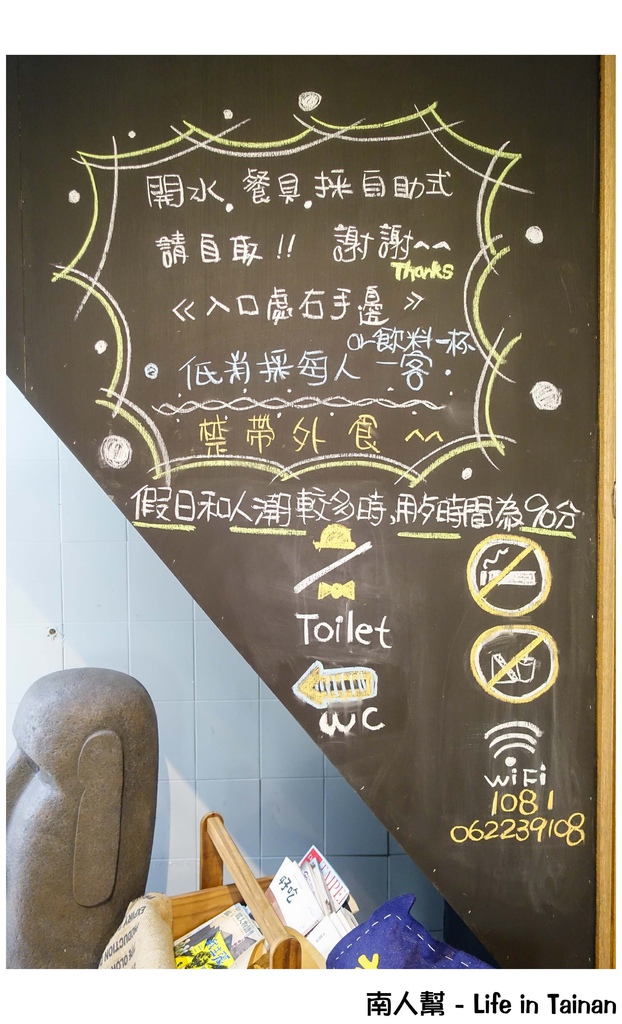 開水.餐具.採自助式
請自取!! 謝謝^^
Thanks
《入口處右手邊》
or飲料一杯
低消採每人一客.
禁帶外食^^
假日和人潮較多時,用餐時間為90分
Toilet
WC
WiFi
1081
062239108
好吃
南人幫 - Life in Tainan